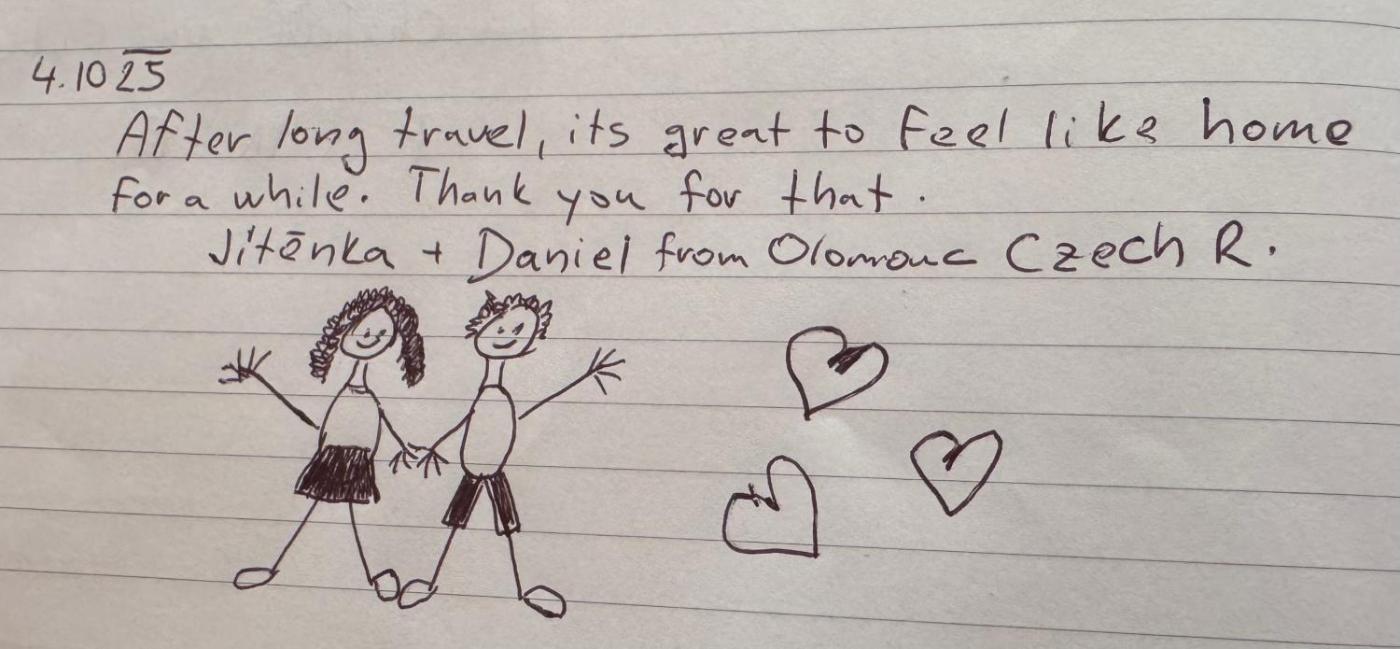 4.10 25
After long travel, its great to feel like home
for a while. Thank you for that.
Jítěnka + Daniel from Olomouc Czech R.